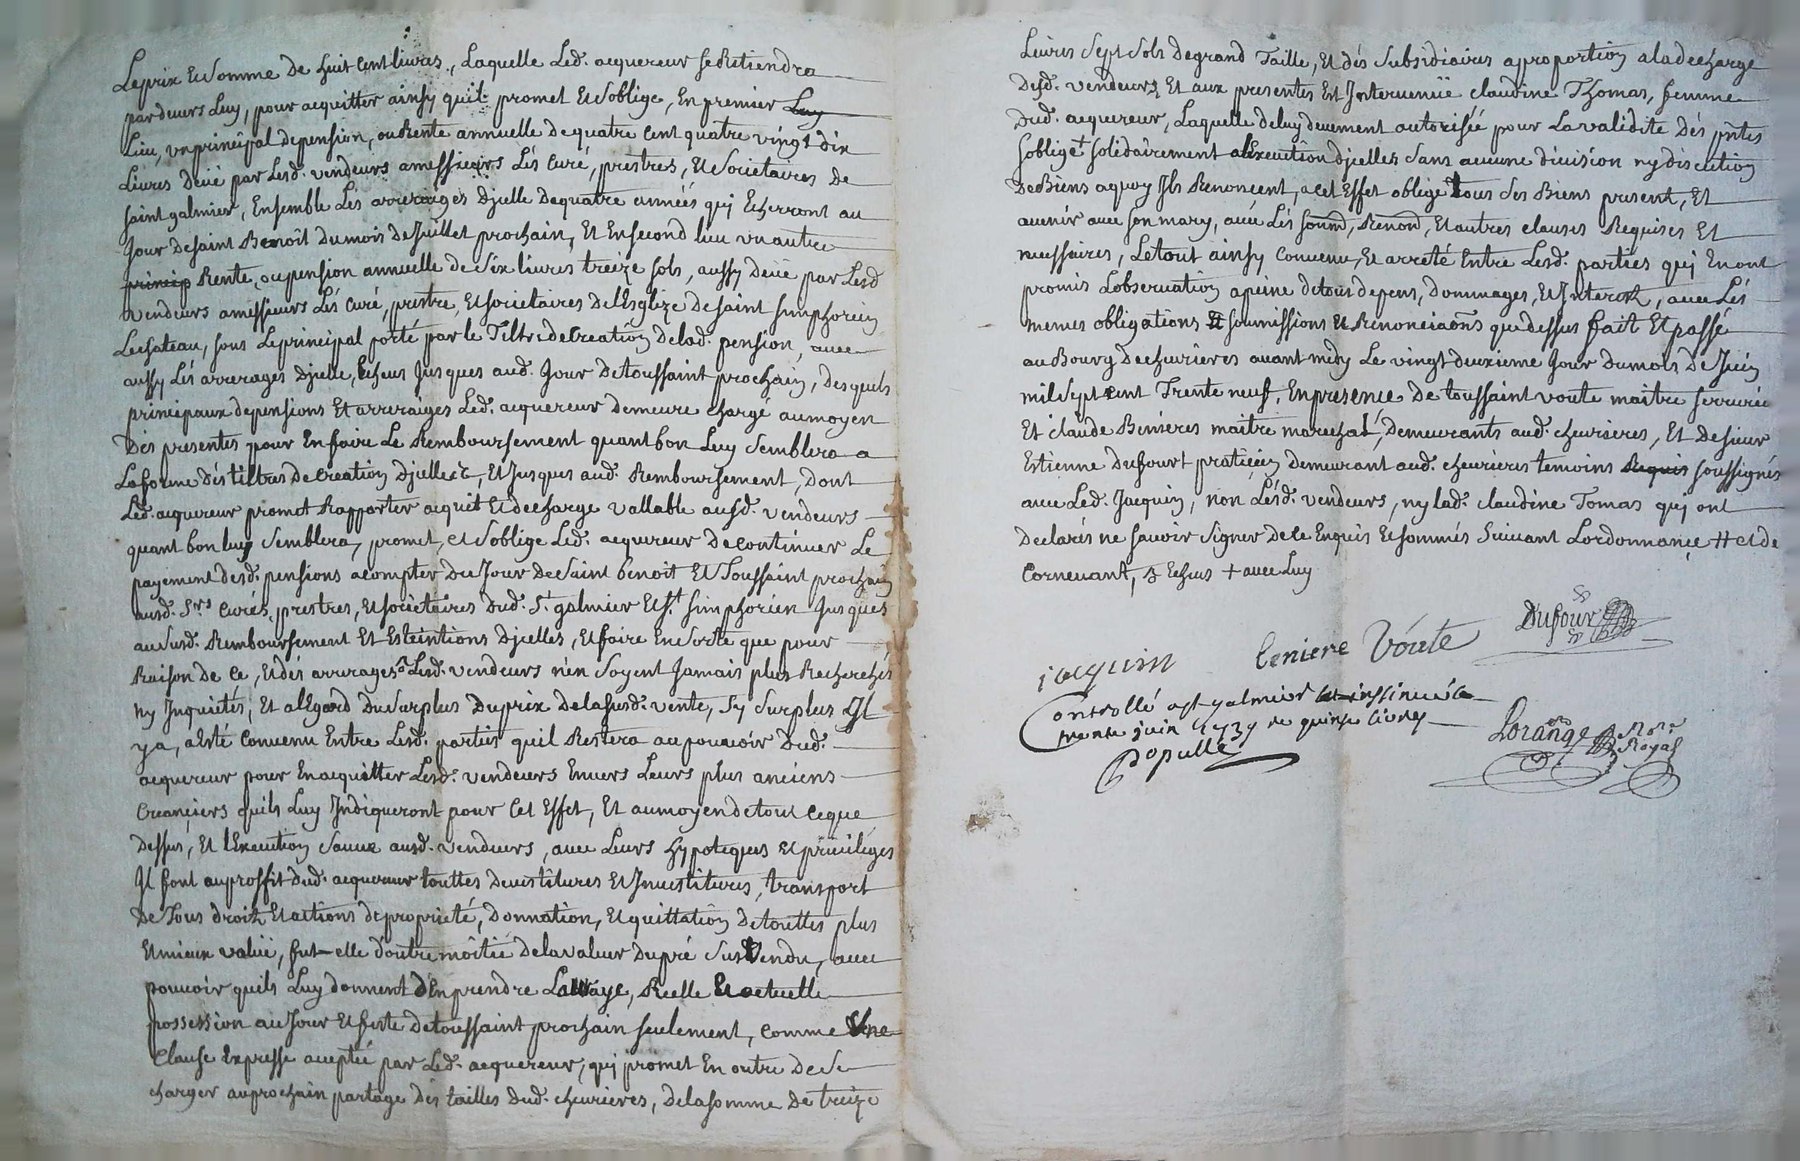 Le prix et somme De huit Cent livres, Laquelle Led. acquereur se Retiendra
par devers Luy, pour acquitter ainsy quil promet Et soblige, En premier Luy
Lieu, un principal de pension, ou Rente annuelle de quatre cent quatre vingt dix
Livres Deüe par Lesd. vendeurs a messieurs Lés Curé, prestres, Et Societaires de
saint galmier, Ensemble Lés arrerages Djcelle De quatre années quj Echerront au
Jour de saint Benoît du mois de Juillet prochain, Et En second lieu un autre
princip Rente, ou pension annuelle de six livres treize sols, aussy deüe par Lesd
vendeurs a messieurs Lés Curé, prestre, Et societaires de l'Esglize De saint simphorien
Lechateau, sous Le principal porté par le Tiltre de Creatiõn de lad. pension, avec
aussy Lés arrerages Djcelle, Echeus Jusques aud. Jour de toussaint prochain, Desquels
principaux de pensions Et arreraiges Led. acquereur demeure chargé au moyen
Des presentes pour En faire Le Remboursement quant bon Luy semblera a
La forme dés tiltres De Creation Djcelles, Et Jusques aud. Remboursement, Dont
Led. acquereur promet Rapporter acquit Et decharge vallable ausd. vendeurs
quant bon luy semblera, promet, et soblige Led. acquereur De continuer Le
payement desd. pensions a compter Du Jour De saint benoit Et Toussaint prochain
ausd. Srs Curés, prestres, Et societaires dud. St galmier Et St simphorien Jusques
au susd. Remboursement Et Esteintions Djcelles, Et faire En sorte que pour
Raison de ce, Et dés arrerages Lesd. vendeurs n'en soyent Jamais plus Recherchés
ny Inquietés, Et al'Egard Du surplus Du prix De la susd. vente, sy surplus Jl
y a, a Esté Convenu Entre Lesd. parties quil Restera au pouvoir Dud.
acquereur pour En acquitter Lesd. vendeurs Envers Leurs plus anciens
Creanciers quils Luy Indiqueront pour Cet Effet, Et au moyen de tout ce que
Dessus, Et l'Execution sauve ausd. vendeurs, avec Leurs hypoteques et privileges
Jl font au proffit dud. acquereur touttes Devestitures Et Investitures, transport
De Tous droits Et actions de propriété, Donnation, Et quittatiõn De touttes plus
Et mieux valüe, fut-elle d'outre moitié de la valeur Du pré sus Vendu, avec
pouvoir quils Luy donnent d'En prendre La vraye, Reelle Et actuelle
possession au Jour Et feste de toussaint prochain seulement, comme Une
Clause Expresse aceptée par Led. acquereur; quj promet En outre De se
charger au prochain partage dés tailles dud. chevrieres, de la somme De treize
Livres sept sols De grand Taille, Et dés subsidiaires a proportion a la decharge
Desd. vendeurs Et aux presentes Est Intervenüe claudine Thomas, femme
Dud. acquereur, Laquelle de luy deuement autorisée pour La validité Dés pntes
s'oblige solidairement a l'Execution Djcelles sans aucune division ny discution
De Biens a quoy Ils Renoncent, a cet Effet oblige tous ses Biens present, Et
avenir avec son mary, avec Lés soumõ, Renonõ, Et autres clauses Requises Et
necessaires, Le tout ainsy Convenu, Et arreté Entre Lesd. parties quj En ont
promis L'observation a peine de tous depens, Dommages, Et Interests, avec Lés
memes obligations Et soumissions Et Renonciaõns que dessus fait Et passé
au Bourg De chevrieres avant midy Le vingt deuxieme Jour Du mois De Juin
mil sept cent Trente neuf, En presence De toussaint voute maitre serrurié
Et claude Benieres maitre marechal, Demeurants aud. chevrieres, Et De sieur
Estienne Dufour praticien demeurant aud. chevrieres temoins Requis soussignés
avec Led. Jacquin, non Lésd. vendeurs, ny lad. claudine Tomas quj ont
Declarés ne savoir signer de ce Enquis Et sommés suivant Lordonnance # et de
Cornevant, Echeus + avec Luy
Dufour
jacquin beniere Voute
Controllé a st galmier et insinué le
trente juin 1739 re quinze livres
Lorange Nore Royal
Populle